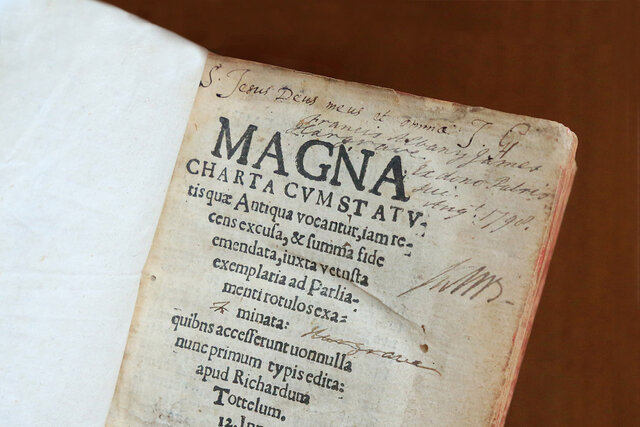 S. Jesus Deus meus et omnia J G
Francis
Hargrave
James
Augt. 1798.
MAGNA
CHARTA CVM STATV-
tis quæ Antiqua vocantur, iam re-
cens excusa, & summa fide
emendata, iuxta vetusta
exemplaria ad Parlia-
menti rotulos exa-
minata:
Hargrave
quibus accesserunt nonnulla
nunc primum typis edita:
apud Richardum
Tottelum.